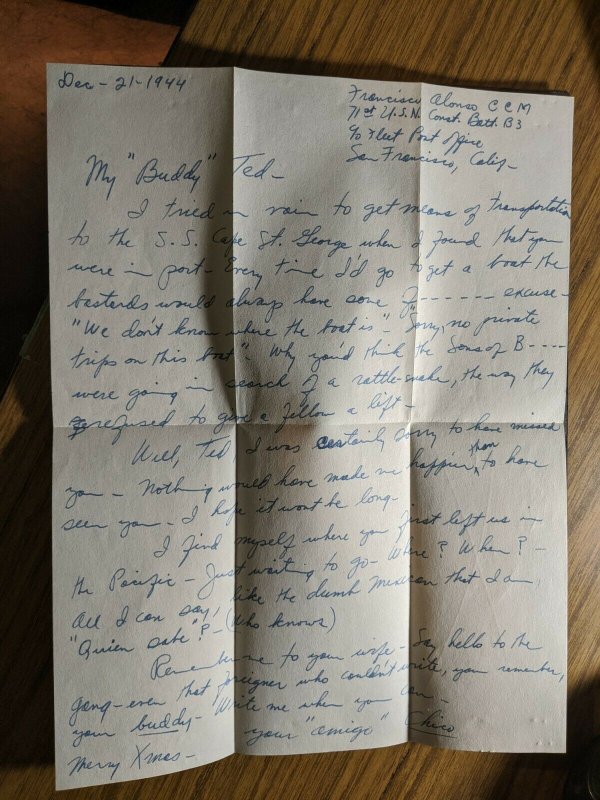 Dec - 21 - 1944
Francisco Alonso C C M
71st U.S.N. Const. Batt. B3
c/o Fleet Post Office
San Francisco, Calif -
My "Buddy" Ted -
I tried in vain to get means of transportation
to the S.S. Cape St. George when I found that you
were in port - Every time I'd go to get a boat the
bastards would always have some f------ excuse -
"We don't know where the boat is" - "Sorry, no private
trips on this boat" - Why you'd think the Sons of B----
were going in search of a rattle-snake, the way they
refused to give a fellow a lift -
Well, Ted I was certainly sorry to have missed
you - Nothing would have made me happier than to have
seen you - I hope it wont be long -
I find myself where you first left us in
the Pacific - Just waiting to go - Where? When? -
All I can say, like the dumb Mexican that I am,
"Quien sabe"? - (Who knows)
Remember me to your wife - Say hello to the
gang - even that foreigner who couldn't write, you remember,
your buddy - Write me when you can -
your "amigo" Chico
Merry Xmas -